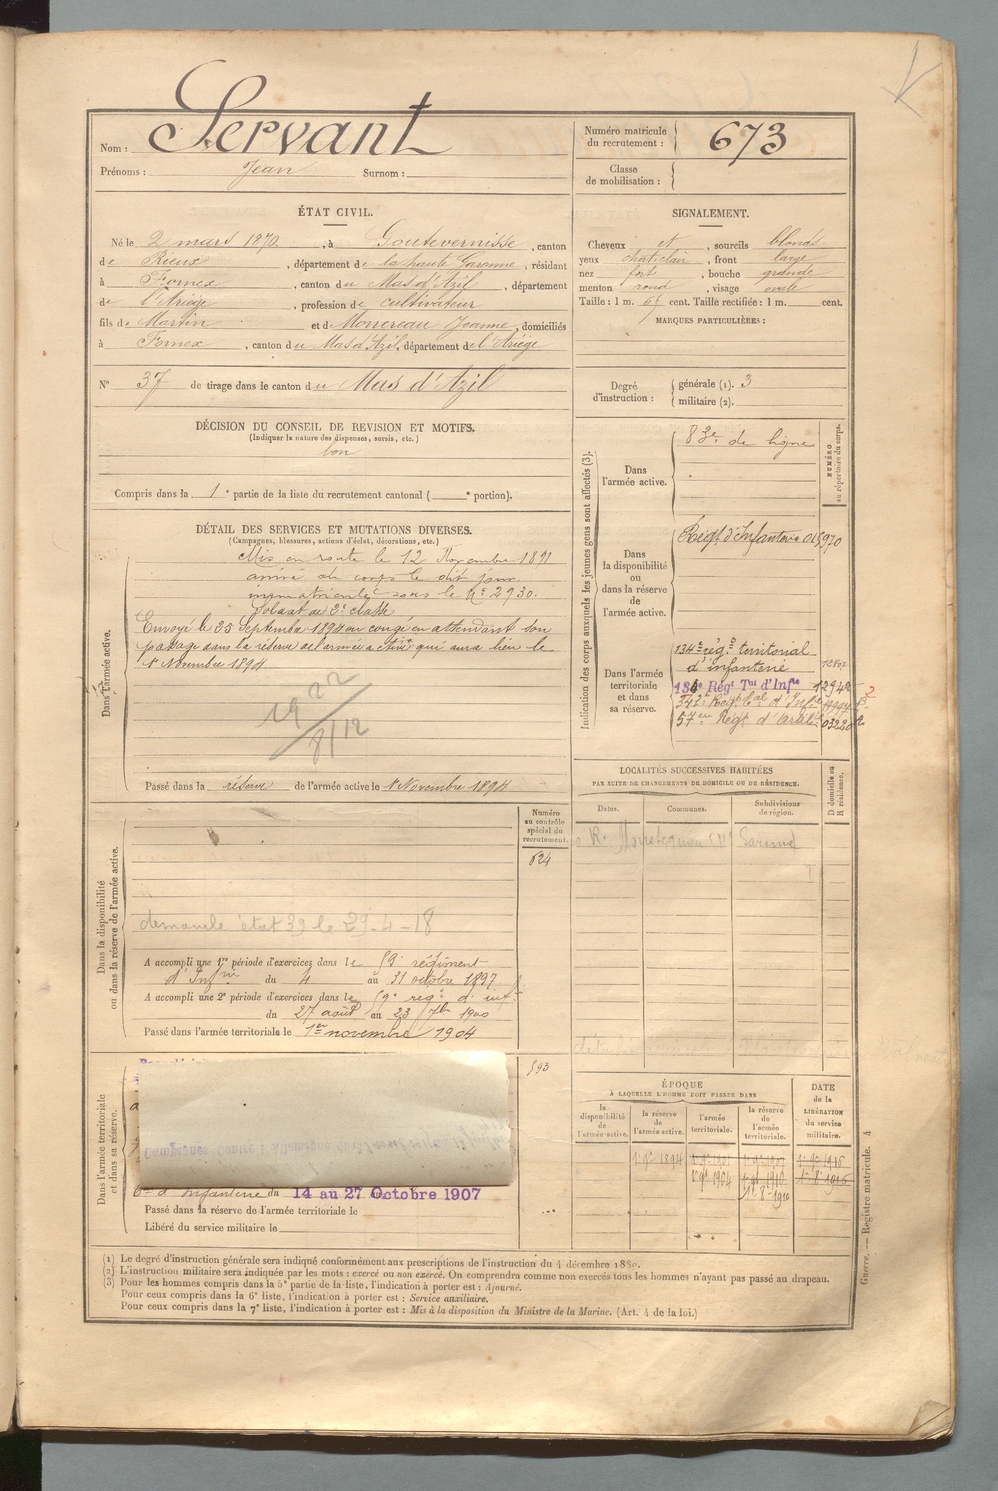 Nom : Servant
Prénoms : Jean Surnom :
Numéro matricule du recrutement : 673
Classe de mobilisation :
ÉTAT CIVIL.
Né le 2 mars 1870, à Goutevernisse, canton
de Rieux, département de la haute Garonne, résidant
à Fornex, canton du Mas d'Azil, département
de l'Ariège, profession de cultivateur
fils de Martin et de Monereau Jeanne, domiciliés
à Fornex, canton du Mas d'Azil, département de l'Ariège
N° 37 de tirage dans le canton du Mas d'Azil
SIGNALEMENT.
Cheveux et, sourcils blonds
yeux chat. clair, front large
nez fort, bouche grande
menton rond, visage ovale
Taille : 1 m. 65 cent. Taille rectifiée : 1 m. cent.
MARQUES PARTICULIÈRES :
Degré d'instruction : générale (1). 3
militaire (2).
DÉCISION DU CONSEIL DE REVISION ET MOTIFS.
(Indiquer la nature des dispenses, sursis, etc.)
bon
Compris dans la 1e partie de la liste du recrutement cantonal ( e portion).
DÉTAIL DES SERVICES ET MUTATIONS DIVERSES.
(Campagnes, blessures, actions d'éclat, décorations, etc.)
Dans l'armée active.
Mis en route le 12 Novembre 1891
arrivé au corps le dit jour.
immatriculé sous le N° 2930.
Soldat de 2e classe
Envoyé le 25 Septembre 1894 en congé en attendant son
passage dans la réserve de l'armée active qui aura lieu le
1er Novembre 1894
1922
8/12
Passé dans la réserve de l'armée active le 1er Novembre 1894
Indication des corps auxquels les jeunes gens sont affectés (3).
NUMÉRO au répertoire du corps.
Dans l'armée active.
83e de ligne
Dans la disponibilité ou dans la réserve de l'armée active.
Régt d'Infanterie
Dans l'armée territoriale et dans sa réserve.
134e régt territorial
d'infanterie
134e Régt Tal d'Infie
57e Régt d'Artie
LOCALITÉS SUCCESSIVES HABITÉES
PAR SUITE DE CHANGEMENTS DE DOMICILE OU DE RÉSIDENCE.
Dates. Communes. Subdivisions de région. D domicile ou R résidence.
R.
Dans la disponibilité ou dans la réserve de l'armée active.
Numéro au contrôle spécial du recrutement.
624
demande état 39 le 29-4-18
A accompli une 1re période d'exercices dans le 59e régiment
d'Infie du 4 au 31 octobre 1897
A accompli une 2e période d'exercices dans le 59e regt d'inf
du 27 août au 23 7bre 1900
Passé dans l'armée territoriale le 1er novembre 1904
Dans l'armée territoriale et dans sa réserve.
593
Campagnes Contre l'Allemagne
d'Infanterie du 14 au 27 Octobre 1907
Passé dans la réserve de l'armée territoriale le
Libéré du service militaire le
ÉPOQUE
À LAQUELLE L'HOMME DOIT PASSER DANS
la disponibilité de l'armée active. la réserve de l'armée active. l'armée territoriale. la réserve de l'armée territoriale.
DATE de la LIBÉRATION du service militaire.
1er 9e 1894
1er 9e 1904
(1) Le degré d'instruction générale sera indiqué conformément aux prescriptions de l'instruction du 4 décembre 1889.
(2) L'instruction militaire sera indiquée par les mots : exercé ou non exercé. On comprendra comme non exercés tous les hommes n'ayant pas passé au drapeau.
(3) Pour les hommes compris dans la 5e partie de la liste, l'indication à porter est : Ajourné.
Pour ceux compris dans la 6e liste, l'indication à porter est : Service auxiliaire.
Pour ceux compris dans la 7e liste, l'indication à porter est : Mis à la disposition du Ministre de la Marine. (Art. 4 de la loi.)
Guerre. — Registre matricule. 4